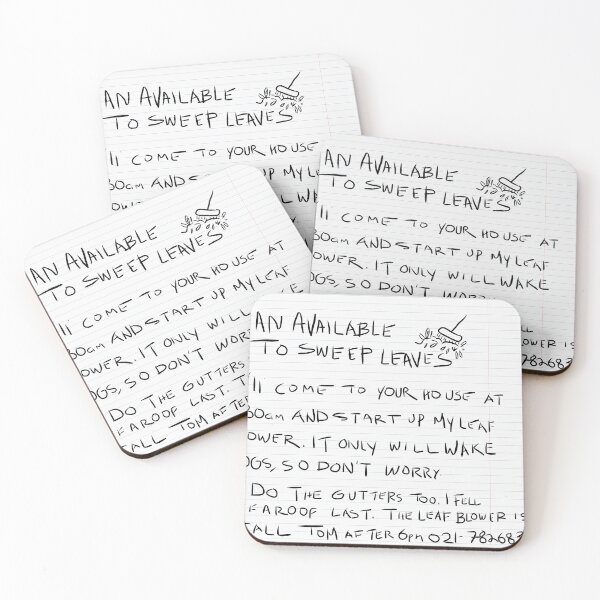 AN AVAILABLE
TO SWEEP LEAVES
ll COME TO YOUR HOUSE
30am AND START UP MY
AN AVAILABLE
TO SWEEP LEAVES
COME TO YOUR HOUSE AT
30am AND START UP MY LEAF
OWER. IT ONLY WILL WAKE
OGS, SO DON'T WORRY
BLOWER IS
782683
AN AVAILABLE
TO SWEEP LEAVES
ll COME TO YOUR HOUSE AT
30am AND START UP MY LEAF
OWER. IT ONLY WILL
OGS, SO DON'T
DO THE GUTTERS
F A ROOF LAST. T
ALL TOM AFTER
AN AVAILABLE
TO SWEEP LEAVES
ll COME TO YOUR HOUSE AT
30am AND START UP MY LEAF
OWER. IT ONLY WILL WAKE
OGS, SO DON'T WORRY
DO THE GUTTERS TOO. I FELL
F A ROOF LAST. THE LEAF BLOWER IS
ALL TOM AFTER 6pm 021-782683